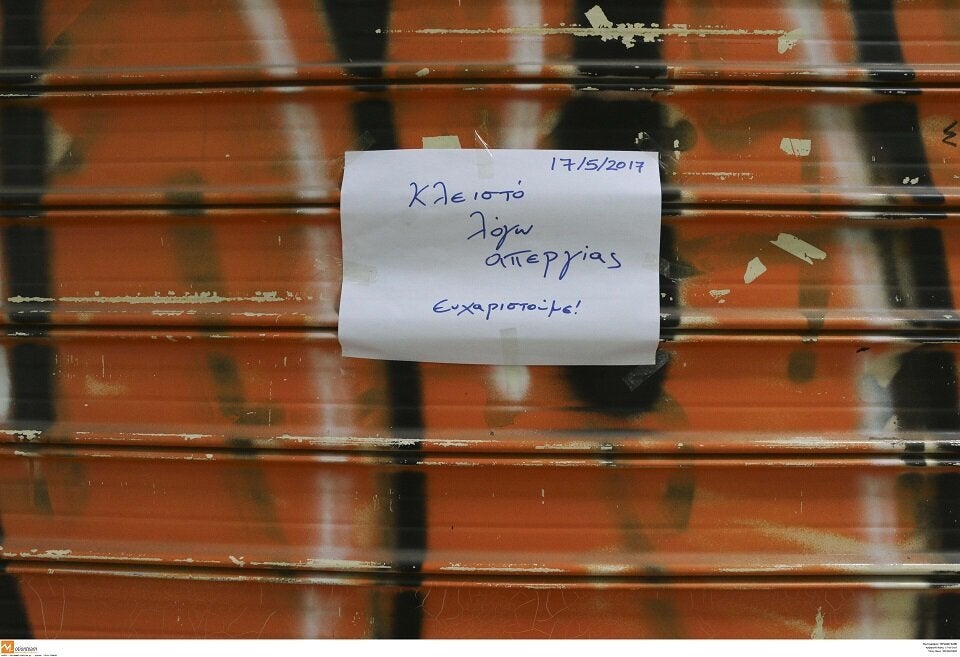 17/5/2017
Κλειστό
λόγω
απεργίας
Ευχαριστούμε!